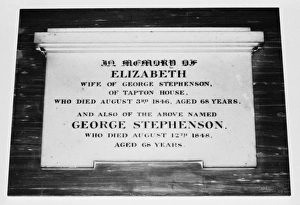 In Memory of
ELIZABETH
WIFE OF GEORGE STEPHENSON,
OF TAPTON HOUSE,
WHO DIED AUGUST 3RD 1846, AGED 68 YEARS.
AND ALSO OF THE ABOVE NAMED
GEORGE STEPHENSON,
WHO DIED AUGUST 12TH 1848,
AGED 68 YEARS.